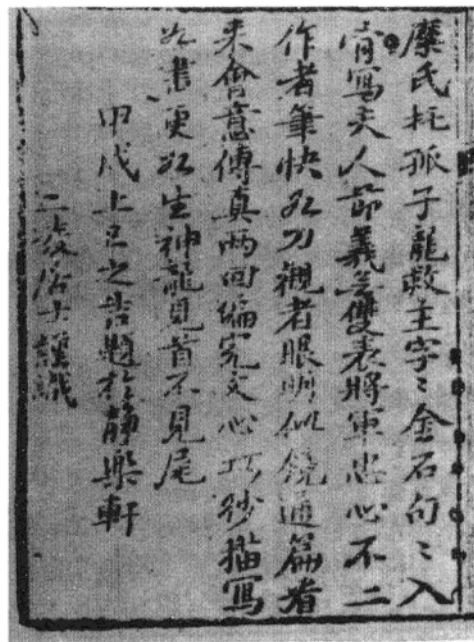 糜氏托孤子龍救主字〻金石句〻入
骨寫夫人節義無雙表將軍忠心不二
作者筆快如刀觀者眼明似鏡通篇看
來會意傳真兩回編完文心巧妙描寫
如畫更如生神龍見首不見尾
甲戌上巳之吉題於靜樂軒
二凌居士謹識